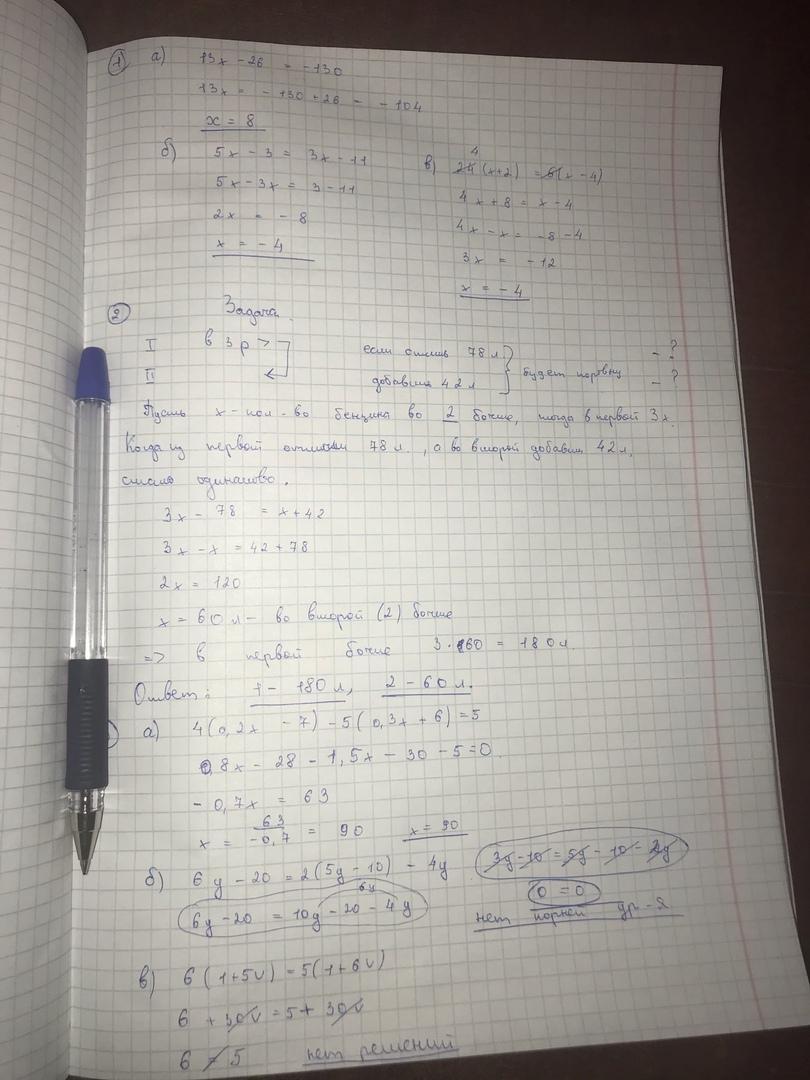 1 а) 13x - 26 = -130
13x = -130 + 26 = -104
x = 8
б) 5x - 3 = 3x - 11
5x - 3x = 3 - 11
2x = -8
x = -4
в) 4
24(x+2) = 6(x-4)
4x + 8 = x - 4
4x - x = -8 - 4
3x = -12
x = -4
2 Задача.
I в 3 р > если отлить 78 л. - ?
II добавить 42 л будет поровну - ?
Пусть x - кол-во бензина во 2 бочке, тогда в первой 3x.
Когда из первой отлили 78 л., а во второй добавили 42 л,
стало одинаково.
3x - 78 = x + 42
3x - x = 42 + 78
2x = 120
x = 60 л - во второй (2) бочке
=> в первой бочке 3·60 = 180 л.
Ответ: 1 - 180 л, 2 - 60 л.
а) 4(0,2x - 7) - 5(0,3x + 6) = 5
0,8x - 28 - 1,5x - 30 - 5 = 0
- 0,7x = 63
x = 63/-0,7 = 90 x = 90
б) 6y - 20 = 2(5y - 10) - 4y
3y - 10 = 5y - 10 - 2y
6y
6y - 20 = 10y - 20 - 4y
0 = 0
нет корней ур-я
в) 6(1+5v) = 5(1+6v)
6 + 30v = 5 + 30v
6 ≠ 5 нет решений